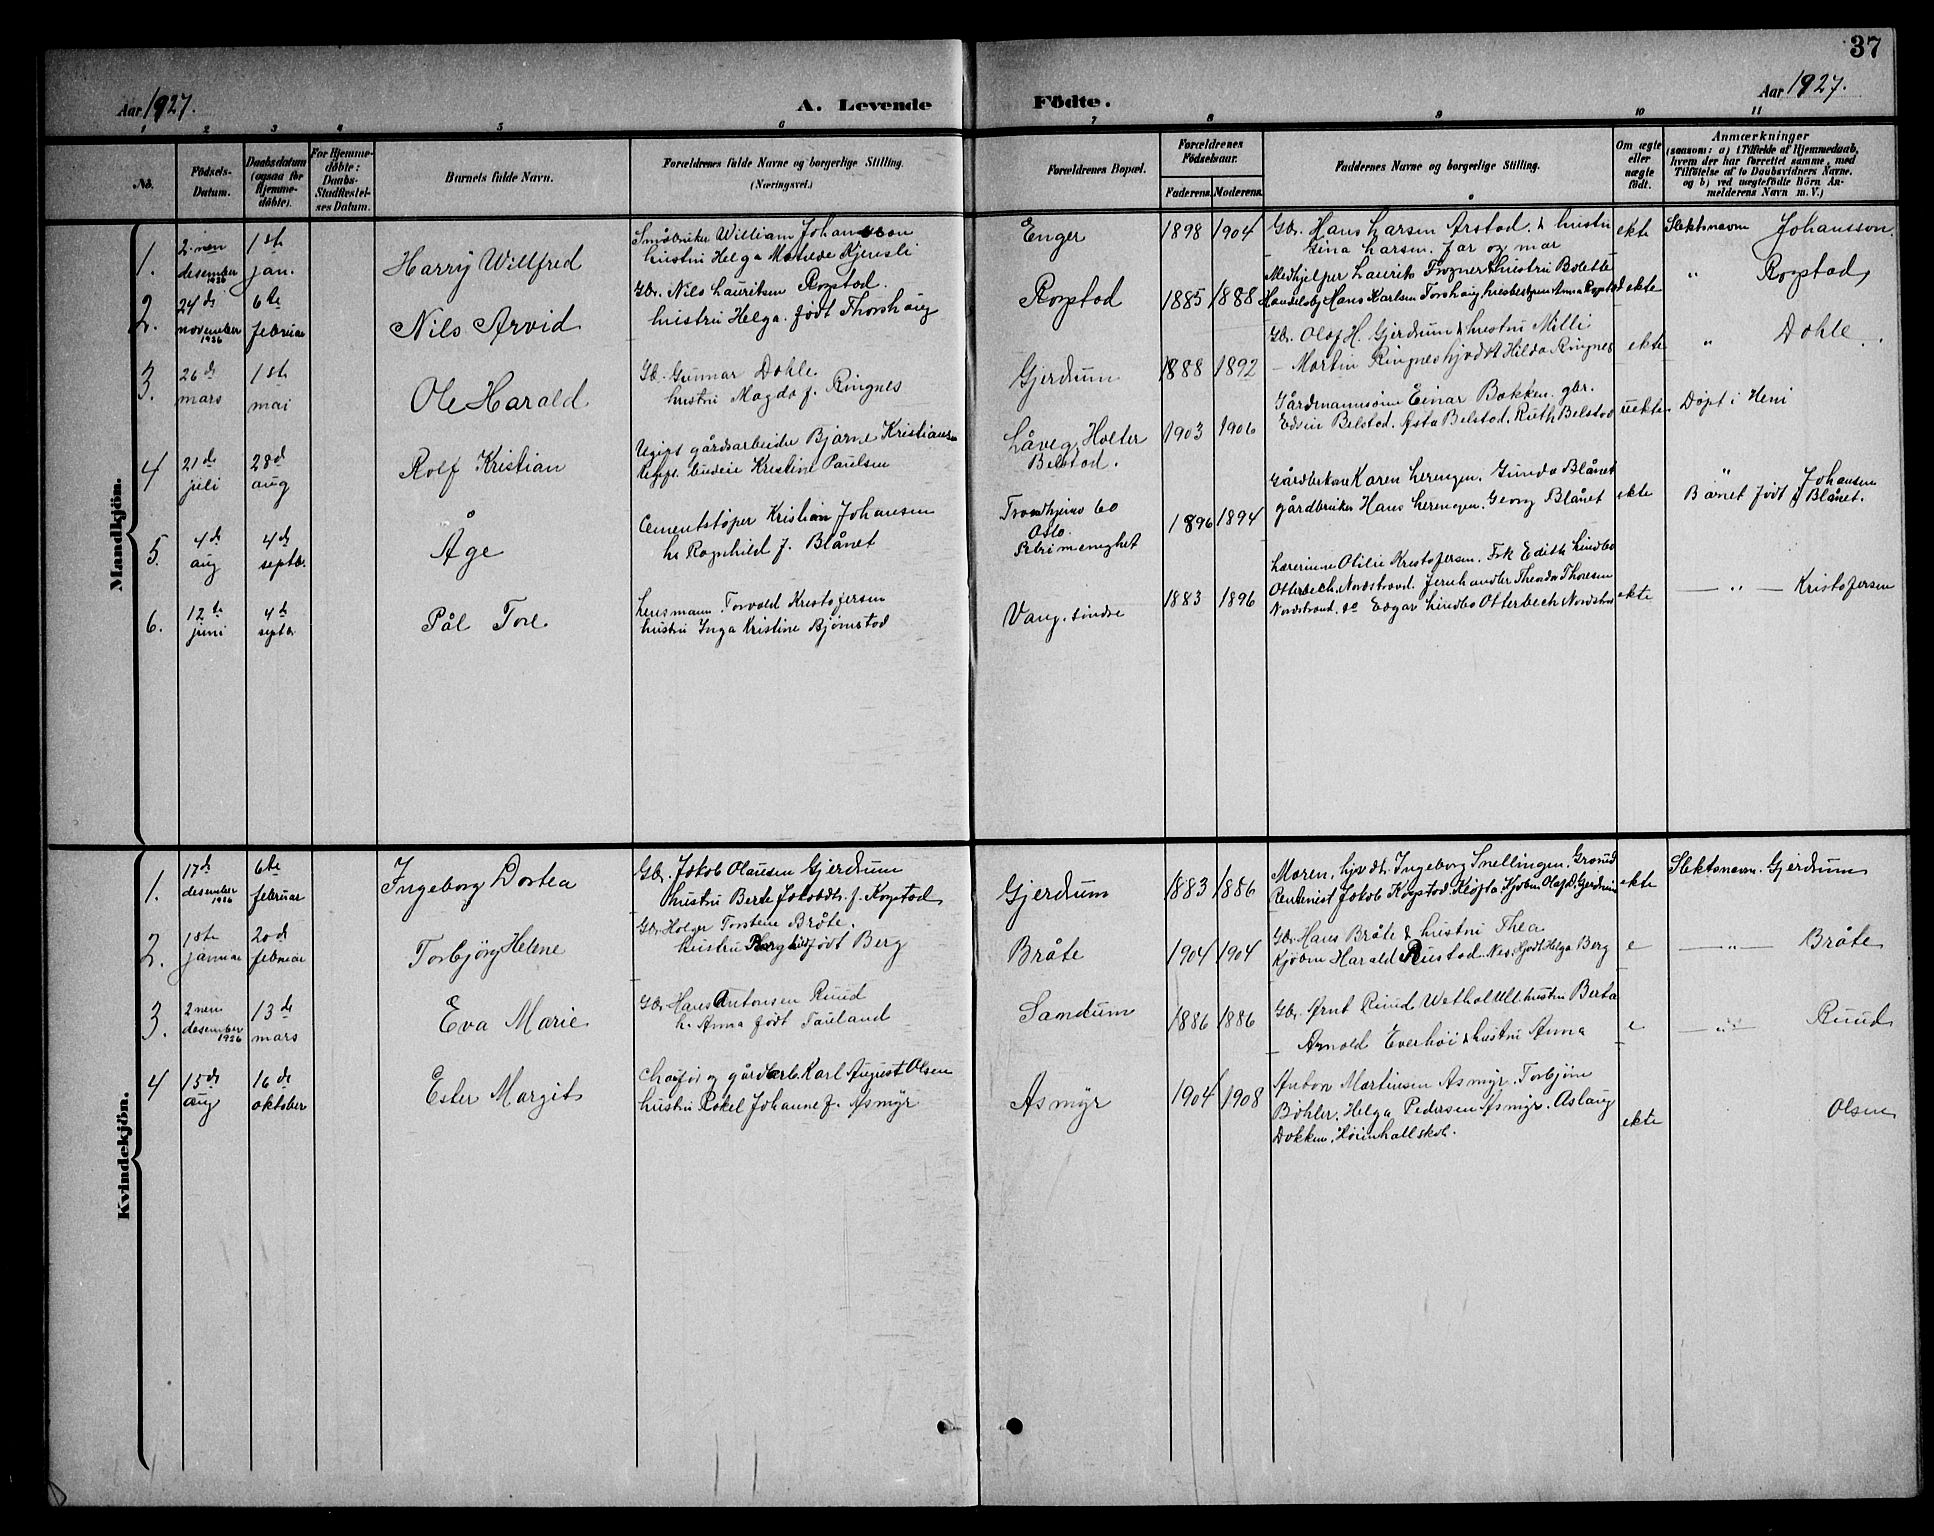 37
Aar 1927.
A. Levende
Födte.
Aar 1927.
1 2 3 4 5 6 7 8 9 10 11
No.
Födsels-Datum.
Daabsdatum (ogsaa for Hjemme-döbte).
For Hjemme-döbte: Daabs-Stadfæstel-ses Datum.
Barnets fulde Navn.
Forældrenes fulde Navne og borgerlige Stilling.
(Næringsvei.)
Forældrenes Bopæl.
Forældrenes Födselsaar.
Faderens. Moderens.
Faddernes Navne og borgerlige Stilling.
Om ægte eller uægte födt.
Anmærkninger
(saasom: a) i Tilfælde af Hjemmedaab, hvem der har forrettet samme, med Tilföielse af to Daabsvidners Navne, og b) ved uægtefödte Börn Anmelderens Navn m. V.)
Mandkjön.
1.
2-nen desember 1926
1ste jan.
Harry Willfred
Småbruker William Johansson
hustru Helga Matilde Kjensli
Enger
1898 1904
Gbr. Hans Larsen Arstad & hustru
Gina Larsen. far og mor
ekte
Slektsnavn Johansson
2.
24de november 1926
6te februar
Nils Arvid
Gbr. Nils Lauritsen Rogstad.
hustru Helga født Thorshaug
Rogstad
1885 1888
Medhjelper Laurits Frogner & hustru Bolette
Handelsbj Hans Karlsen Torshaug, husbestyrer Anna Rogstad
ekte
" Rogstad
3.
26de mars
1ste mai
Ole Harald
Gb. Gunnar Dohle.
hustru Magda f. Ringnes
Gjerdrum
1888 1892
Gbr. Olaf H. Gjerdrum & hustru Milli
- Martin Ringnes hjvdt Hilda Ringnes
ekte
" Dohle.
4
21de juli
28de aug
Rolf Kristian
Ugift gårdsarbeider Bjarne Kristiansen
Ugift budeie Kristine Paulsen
Låveg, Holter
Belstad.
1903 1906
Gårdmannsønn Einar Bakken. gbr.
Edvin Belstad. Asta Belstad. Ruth Belstad
uekte
Døpt i Heni
5.
4de aug
4de septbr.
Åge
Cementstøper Kristian Johansen
h. Ragnhild f. Blånet
Trondhjems 60
Oslo.
Petri menighet
1896 1894
Gårdbrkone Karen Herengen. Gunda Blånet
gårdbruker Hans Herengen. Georg Blånet
ekte
" Johansen
Barnet født på Blånet.
6.
12te juni
4de septbr
Pål Tore
Lensmann Torvald Kristofersen
hustru Inga Kristine Bjørnstad
Vang, Lindsø
1883 1896
Lærerinne Otilie Kristofersen. Frk Edith Lindbo
Otterbech, Nordstrand. Jernhandler Theodor Thoresen
Nordstrand, do Edgar Lindbo Otterbech Nordstrand
ekte
— " — Kristofersen
Kvindekjön.
1.
17de desember 1926
6te februar
Ingeborg Dortea
Gbr. Jakob Olausen Gjerdrum
hustru Berte Jakobdtr. f. Rogstad
Gjerdrum
1883 1886
Moren, hjv dt. Ingeborg Snellingen, Grorud
Rentenist Jakob Rogstad Kløfta, Kjøbm Olaf D. Gjerdrum
ekte
Slektsnavn. Gjerdrum
2.
18te januar
20de februar
Torbjørg Helene
Gbr Holger Torstein Bråte.
hustru Borghild født Berg
Bråte
1904 1904
Gbr Hans Bråte & hustru Thea
Kjøbm Harald Rustad. Nes. Hjvdt Helga Berg
e
— " — Bråte
3.
2nen desember 1926
13de mars
Eva Marie
Gbr Hans Antonsen Ruud
h. Anna født Tauland
Sandum
1886 1886
Gbr. Ørnt Ruud Wethal Ull hustru Berta
- Arnold Everhøi & hustru Anna
e
— " — Ruud
4
15de aug
16de oktober
Ester Margit
Chaufør og gårdarb. Karl August Olsen
hustru Rakel Johanne f. Asmyr
Asmyr
1904 1908
Anton Martinsen Asmyr. Torbjørn
Bøhler. Helga Pedersen Asmyr. Aslaug
Dokken,
ekte
Olsen